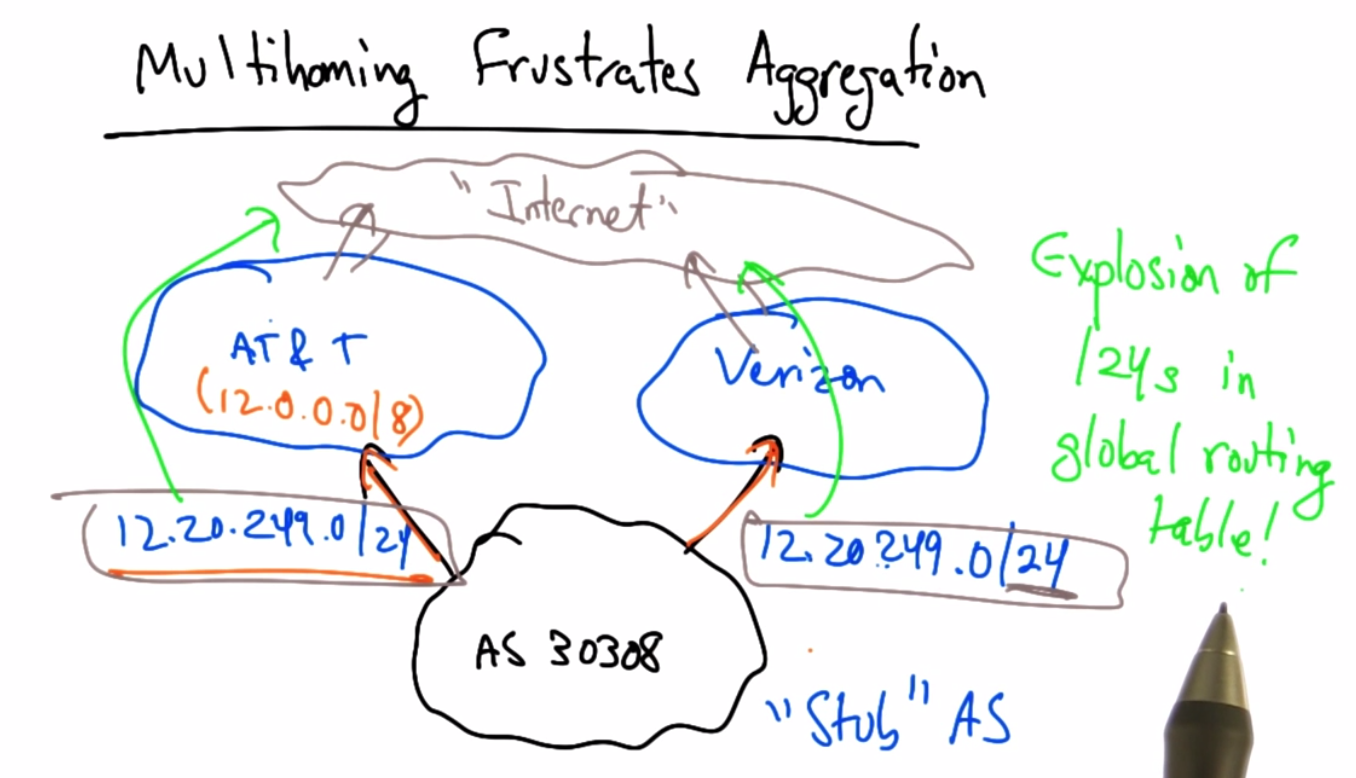 Multihoming Frustrates Aggregation
"Internet"
AT&T
(12.0.0.0/8)
Verizon
Explosion of
/24s in
global routing
table!
12.20.249.0/24
12.20.249.0/24
AS 30308
"Stub" AS